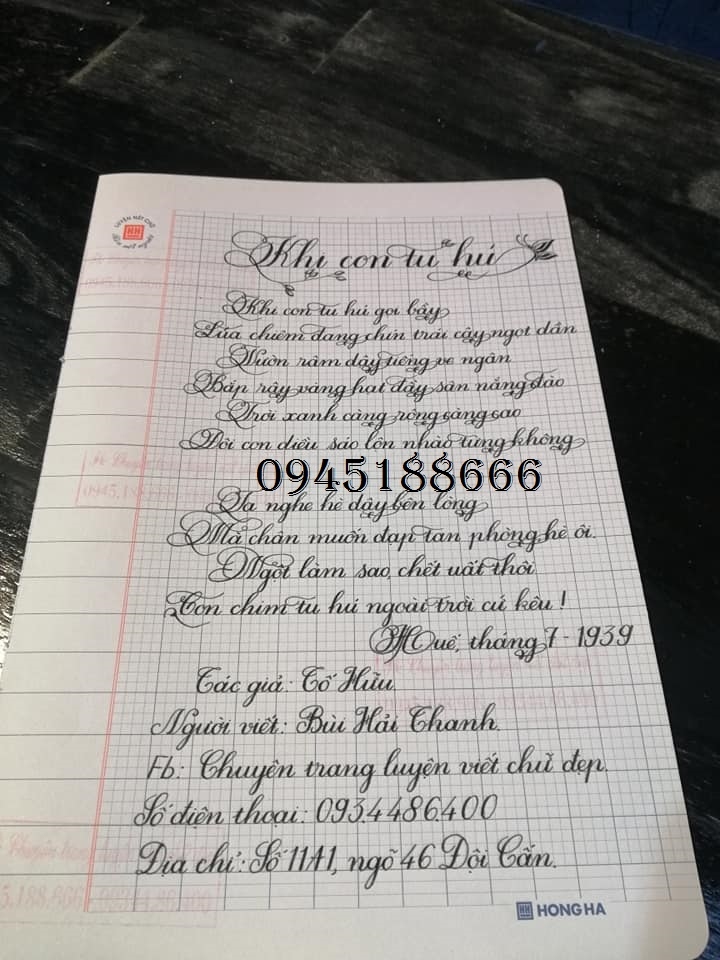 LUYỆN NÉT CHỮ
HH
Rèn nết người
Khi con tu hú
Khi con tu hú gọi bầy
Lúa chiêm đang chín trái cây ngọt dần
Vườn râm dậy tiếng ve ngân
Bắp rây vàng hạt đầy sân nắng đào
Trời xanh càng rộng càng cao
Đôi con diều sáo lộn nhào từng không
0945188666
Ta nghe hè dậy bên lòng
Mà chân muốn đạp tan phòng hè ôi.
Ngột làm sao, chết uất thôi
Con chim tu hú ngoài trời cứ kêu!
Huế, tháng 7-1939
Tác giả: Tố Hữu
Người viết: Bùi Hải Thanh.
Fb: Chuyên trang luyện viết chữ đẹp.
Số điện thoại: 093.4486.400
Địa chỉ: Số 11A1, ngõ 46 Đội Cấn.
HH HONG HA